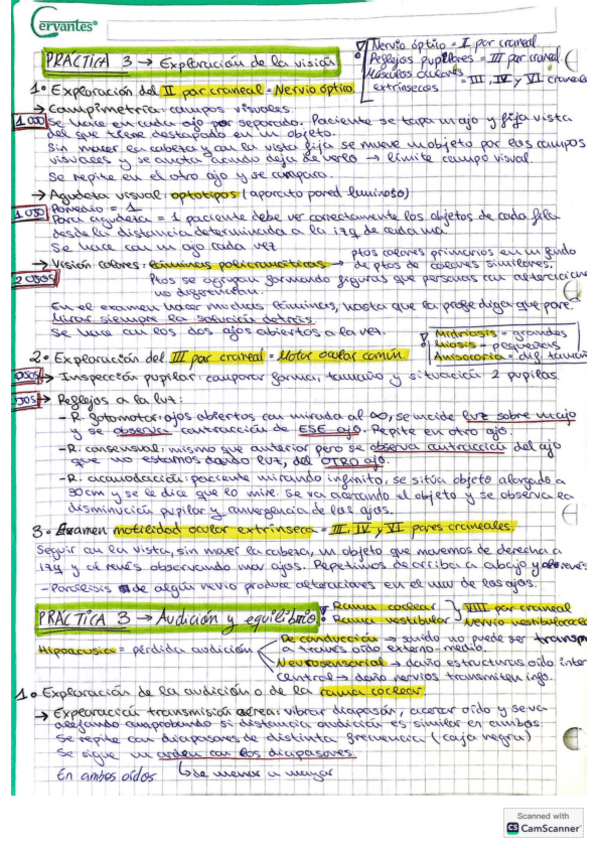 Cervantes®
PRÁCTICA 3 → Exploración de la visión
Nervio óptico = II par craneal
Reflejos pupilares = III par craneal
Músculos oculares extrínsecos = III, IV y VI craneal
1º Exploración del II par craneal = Nervio óptico
→ Campimetría: campos visuales
1 OJO Se hace en cada ojo por separado. Paciente se tapa un ojo y fija vista
del que tiene destapado en un objeto.
Sin mover la cabeza y con la vista fija se mueve un objeto por los campos
visuales y se anota cuando deja de verlo → límite campo visual.
Se repite en el otro ojo y se compara.
→ Agudeza visual: optotipos (aparato pared luminoso)
1 OJO Promedio = 1
Para agudeza = 1 paciente debe ver correctamente los objetos de cada fila
desde la distancia determinada a la izq de cada una.
Se hace con un ojo cada vez
→ Visión colores: láminas policromáticas → ptos colores primarios en un fondo
de ptos de colores similares.
2 OJOS Ptos se agrupan formando figuras que personas con alteraciones
no distinguen.
En el examen hacer muchas láminas, hasta que la profe diga que pare.
Mirar siempre la solución detrás
Se hace con los dos ojos abiertos a la vez.
Midriasis = grandes
Miosis = pequeñas
Anisocoria = dif. tamaño
2º Exploración del III par craneal = Motor ocular común
OJOS → Inspección pupilar: comparar forma, tamaño y situación 2 pupilas.
OJOS → Reflejos a la luz:
- R. fotomotor: ojos abiertos con mirada al ∞, se incide luz sobre un ojo
y se observa contracción de ESE ojo. Repite en otro ojo.
- R. consensual: mismo que anterior pero se observa contracción del ojo
que no estamos dando luz, del OTRO ojo.
- R. acomodación: paciente mirando infinito, se sitúa objeto alargado a
30cm y se le dice que lo mire. Se va acercando el objeto y se observa la
disminución pupilar y convergencia de los ojos.
3º Examen motilidad ocular extrínseca = III, IV y VI pares craneales.
Seguir con la vista, sin mover la cabeza, un objeto que movemos de derecha a
izq y al revés observando mov ojos. Repetimos de arriba a abajo y al revés
- Parálisis de algún nervio produce alteraciones en el mov de los ojos.
PRÁCTICA 3 → Audición y equilibrio
Rama coclear
Rama vestibular
VIII par craneal
Nervio vestibulococle
Hipoacusia = pérdida audición
De conducción → sonido no puede ser transp
a través oído externo-medio.
Neurosensorial → daño estructuras oído inter
Central → daño nervios transmiten info.
1º Exploración de la audición o de la rama coclear
→ Exploración transmisión aérea: vibrar diapasón, acercar oído y se va
alejando comprobando si distancia audición es similar en ambos.
Se repite con diapasones de distinta frecuencia (caja negra)
Se sigue un orden con los diapasones.
En ambos oídos
↳ de menor a mayor
Scanned with
CS CamScanner